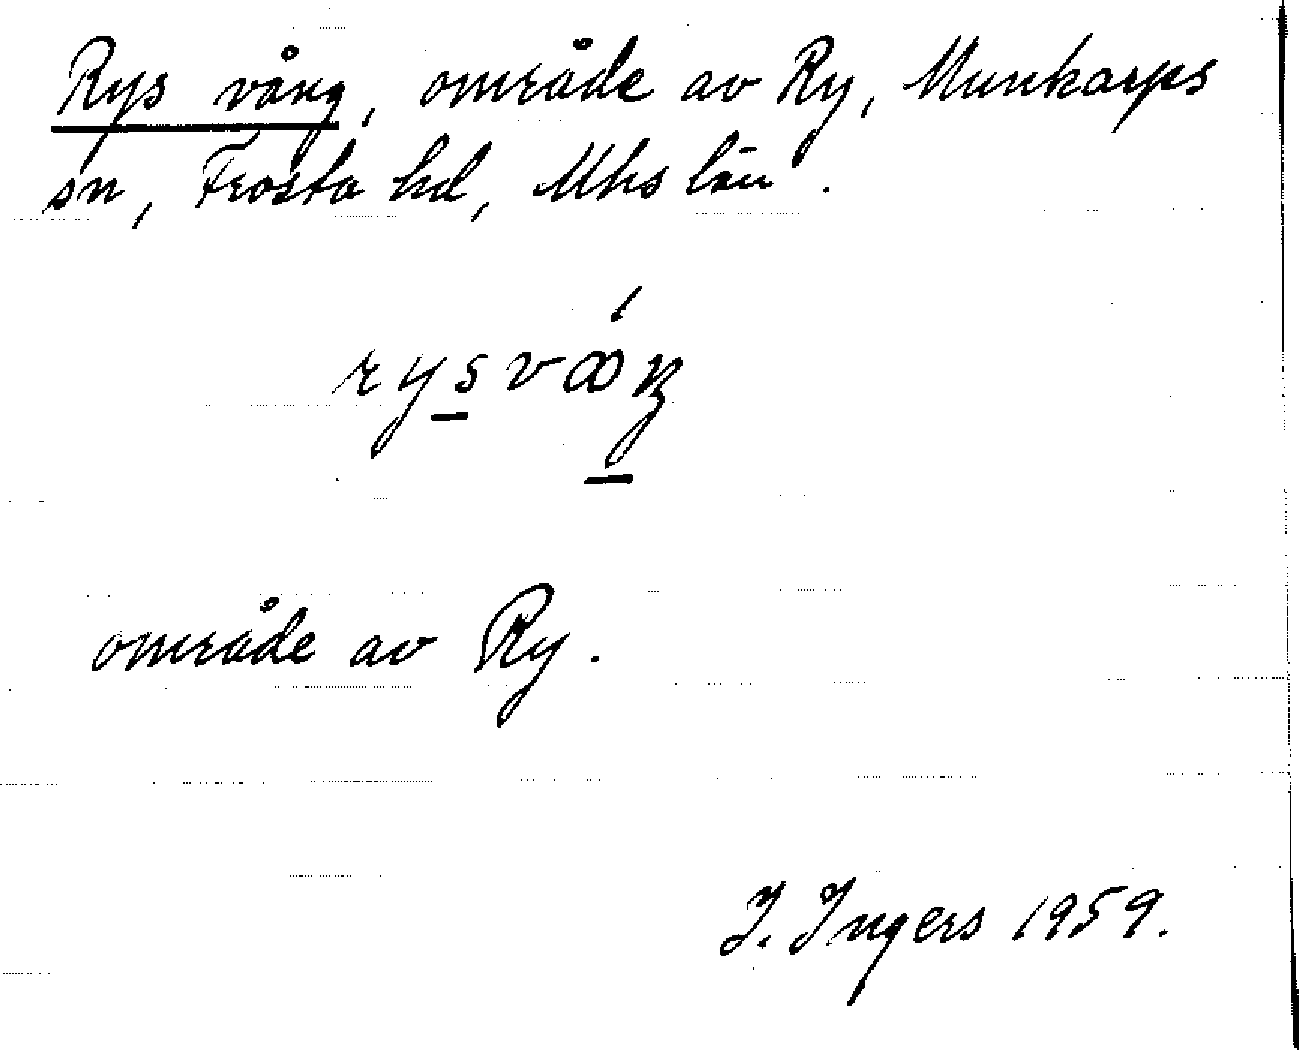 Rys vång, område av Ry, Munkarps
sn, Frosta hd, Mhs län.
rysvꝏ́ŋ
område av Ry.
I. Ingers 1959.